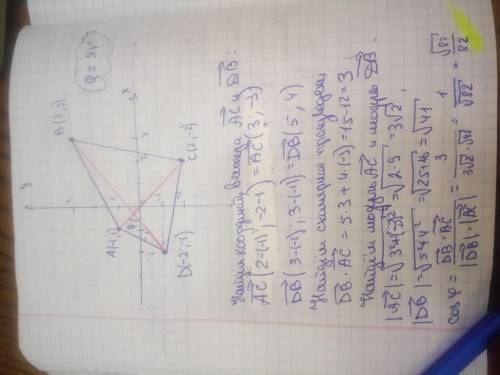 φ = 84°
y
x
B(3;3)
A(-1;1)
C(2;-2)
D(-2;-1)
φ
Найдём координаты вектора AC и DB:
AC(2-(-1); -2-1) = AC(3; -3)
DB(3-(-2); 3-(-1)) = DB(5; 4)
Найдём скалярное произведен
DB · AC = 5·3 + 4·(-3) = 15-12 = 3
Найдём модуль AC и модуль DB.
|AC| = √3²+(-3)² = √2·9 = 3√2,
|DB| = √5²+4² = √25+16 = √41
cos φ = DB · AC / |DB| · |AC| = 3 / 3√2 · √41 = 1 / √82 = √82 / 82